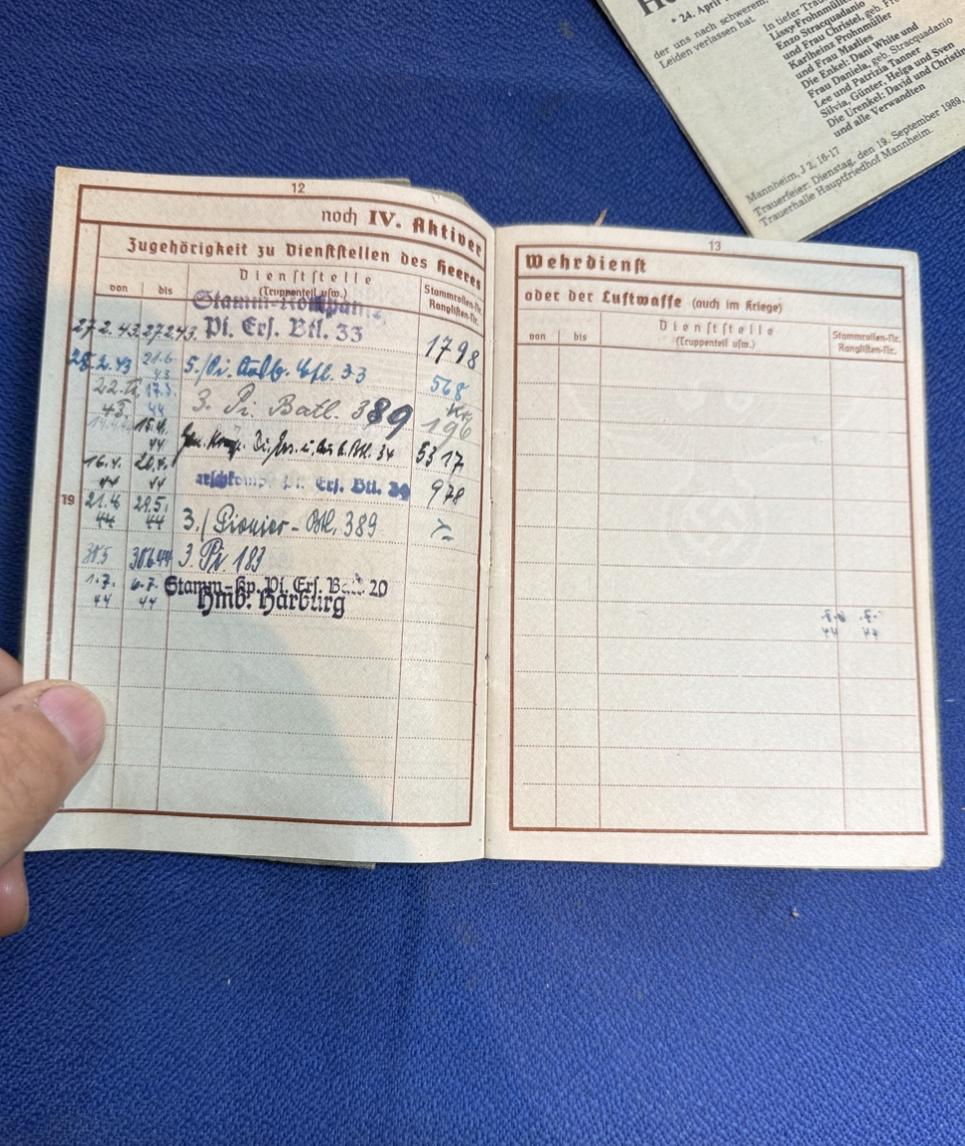 * 24. April
der uns nach schwerem,
Leiden verlassen hat.
In tiefer
Lissy Frohnmüller
Enzo Stracquadanio
und Frau Christel, geb.
Karlheinz Frohnmüller
und Frau Madies
Die Enkel: Dani White und
Frau Daniela, geb. Stracquadanio
Lee und Patrizia Tanner
Silvia, Günter, Helga und Sven
Die Urenkel: David und
und alle Verwandten
Mannheim, J 2, 16-17
Trauerfeier: Dienstag, den 19. September 1989,
Trauerhalle Hauptfriedhof Mannheim.
12
noch IV. Aktiver
Zugehörigkeit zu Dienststellen des Heeres
von bis Dienststelle (Truppenteil usw.) Stammrollen-Nr. Ranglisten-Nr.
Stamm-Kompanie
27.2.43 27.2.43. Pi. Ers. Btl. 33 1798
28.2.43 21.6 43 5./Pi. 33 568
43. 44 3. Pi. Batl. 389 196
15.4. 44 34 5317
16.4. 44 20.4. 44 Pi. Ers. Btl. 978
19
21.4 44 29.5. 44 3./Pionier-Btl. 389
30.5 30.6.44 3. Pi. 183
1.7. 44 6.7. 44 Stamm-Kp. Pi. Ers. 20
Hmb. Harburg
13
Wehrdienst
oder der Luftwaffe (auch im Kriege)
von bis Dienststelle (Truppenteil usw.) Stammrollen-Nr. Ranglisten-Nr.